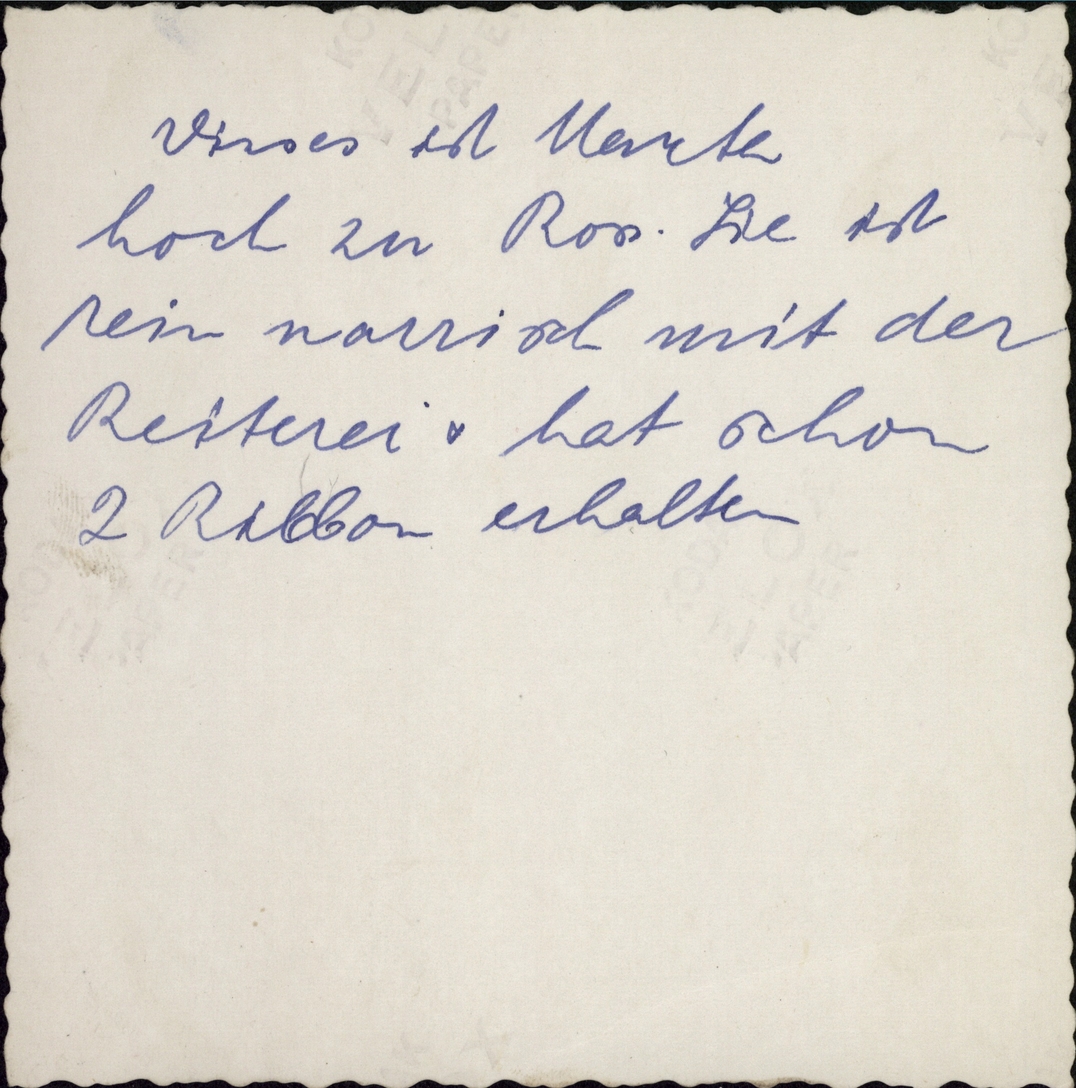 Dieses ist Marta
hoch zu Ross. Sie ist
rein narrisch mit der
Reiterei & hat schon
2 Ribbon erhalten